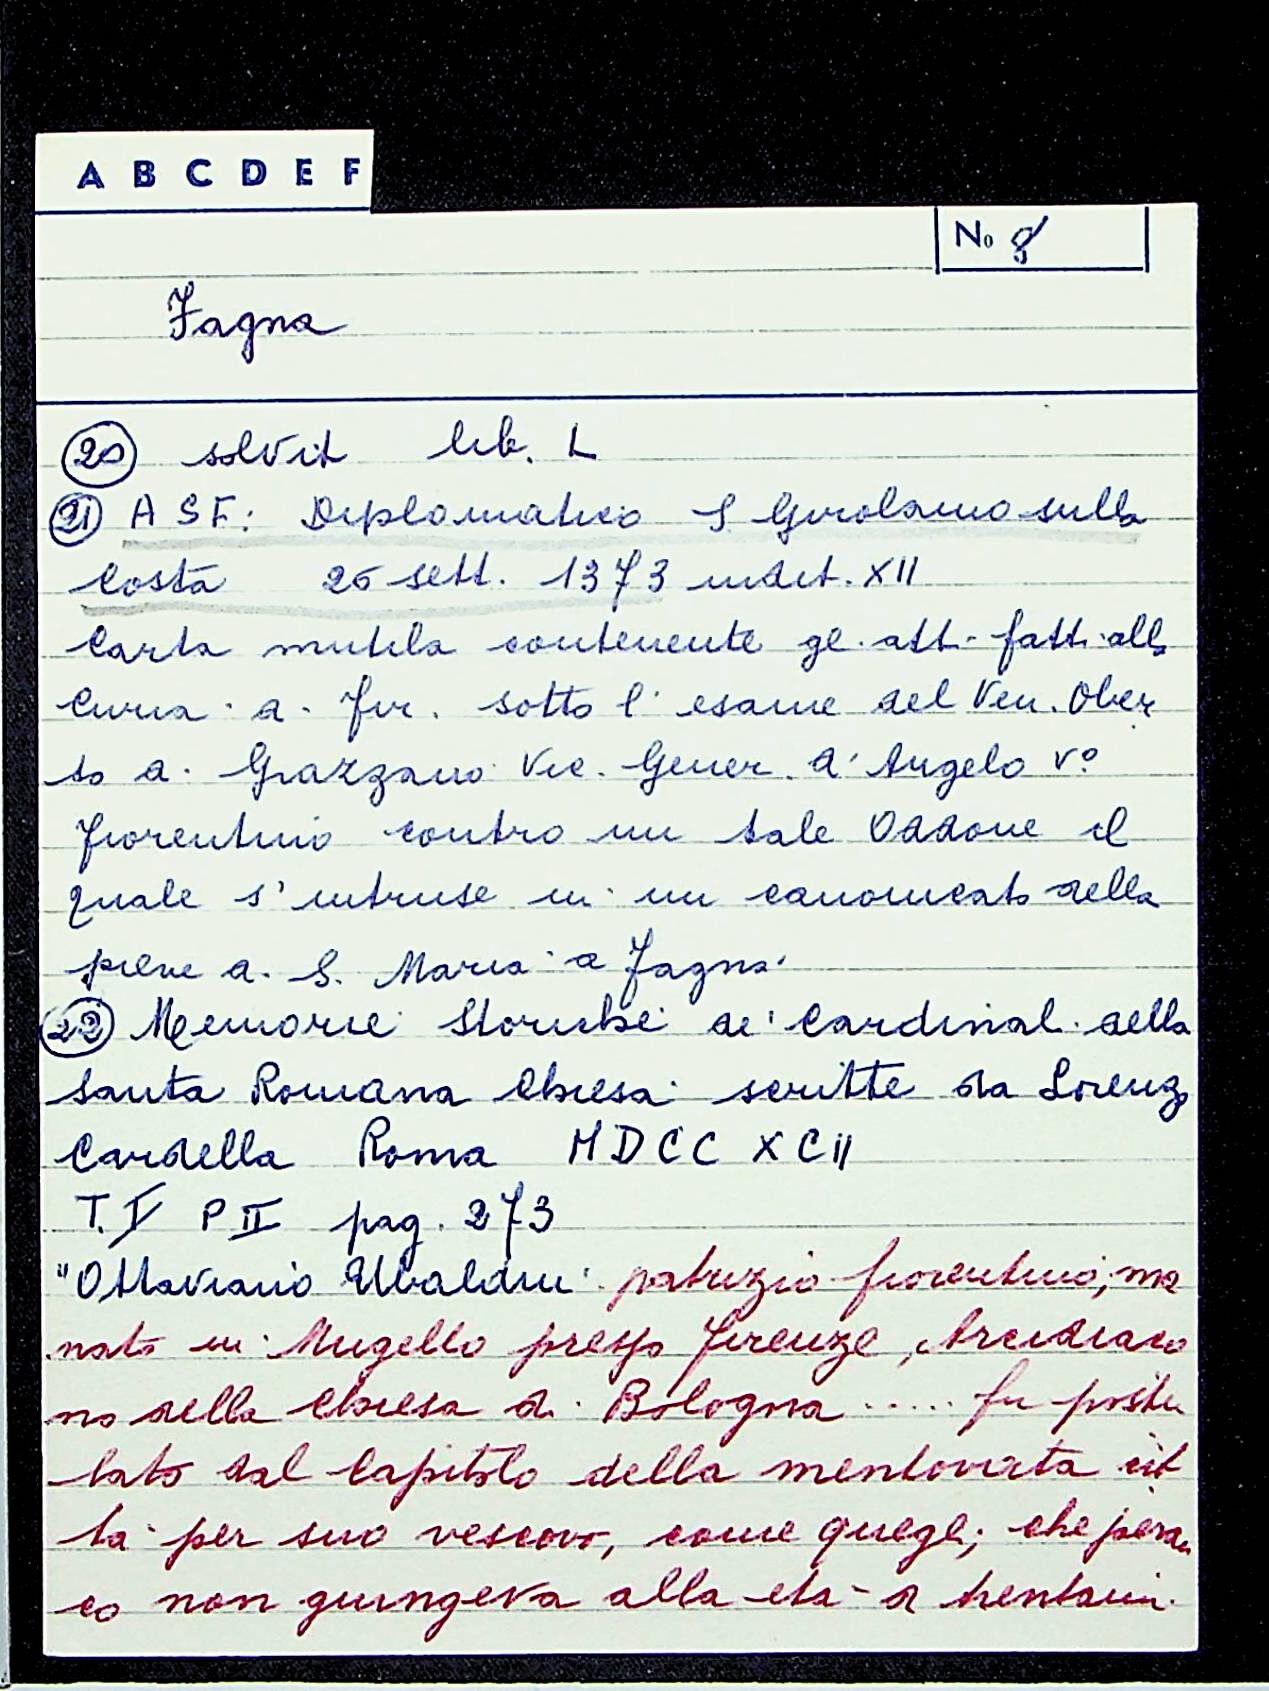 A B C D E F
No 8
Fagna
20 solvit lib. L
21 ASF: Diplomatico S Girolamo sulla
Costa 26 sett. 1373 indit. XII
Carta mutila contenente gl atti fatti alla
Curia di Fir. sotto l' esame del Ven. Ober
to di Grazzano Vic. Gener. d' Angelo Vº
fiorentino contro un tale Oddone il
quale s' intruse in un canonicato della
pieve di S. Maria a Fagna.
22 Memorie Storiche de' Cardinali della
Santa Romana Chiesa scritte da Lorenzo
Cardella Roma MDCCXCII
T. I P II pag. 273
"Ottaviano Ubaldini patrizio fiorentino, ma
nato in Mugello presso Firenze, Arcidiaco
no della Chiesa di Bologna ..... fu postu
lato dal Capitolo della mentovata cit
tà per suo vescovo, come quegli, che peran
co non giungeva alla età di trentani